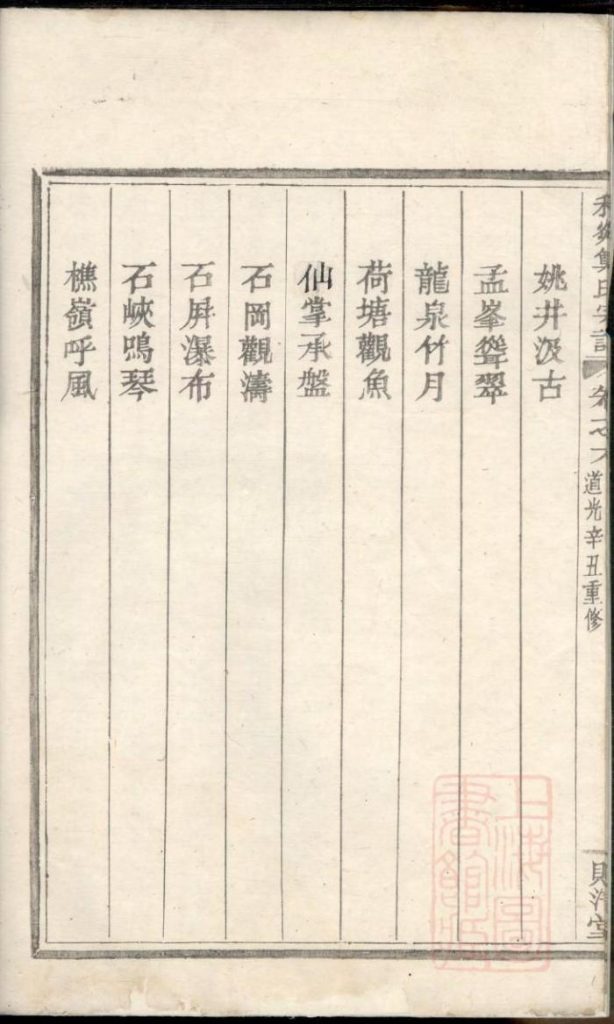 道光辛丑重修
姚井汲古
孟峯聳翠
龍泉竹月
荷塘觀魚
仙掌承盤
石岡觀濤
石屏瀑布
石峽鳴琴
樵嶺呼風
上海圖書館藏